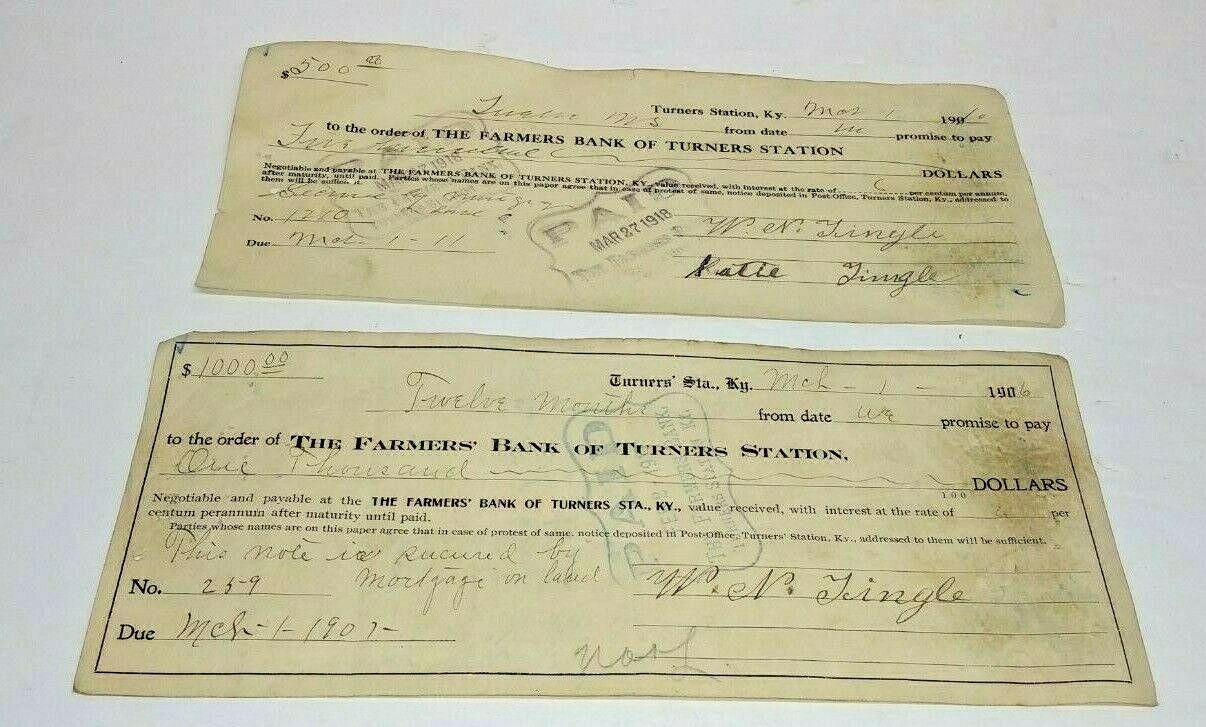 $500 00
Turners Station, Ky. Mch 1 19
Twelve from date We promise to pay
to the order of THE FARMERS BANK OF TURNERS STATION
Five hundred DOLLARS
Negotiable and payable at THE FARMERS BANK OF TURNERS STATION, KY., value received, with interest at the rate of 6 per centum per annum,
after maturity, until paid. Parties whose names are on this paper agree that in case of protest of same, notice deposited in Post-Office, Turners Station, Ky., addressed to
them will be sufficient.
No.
Due Mch-1-11
PAID
MAR 27 1918
W. N. Tingle
Katie Tingle
$1000.00
Turners' Sta., Ky. Mch-1-1906
Twelve Months from date we promise to pay
to the order of THE FARMERS' BANK OF TURNERS STATION,
One Thousand 100 DOLLARS
Negotiable and payable at the THE FARMERS' BANK OF TURNERS STA., KY., value received, with interest at the rate of per
centum perannum after maturity until paid.
Parties whose names are on this paper agree that in case of protest of same, notice deposited in Post-Office, Turners' Station, Ky., addressed to them will be sufficient.
This note is secured by
mortgage on land
No. 259
W. N. Tingle
Due Mch-1-1907-
PAID